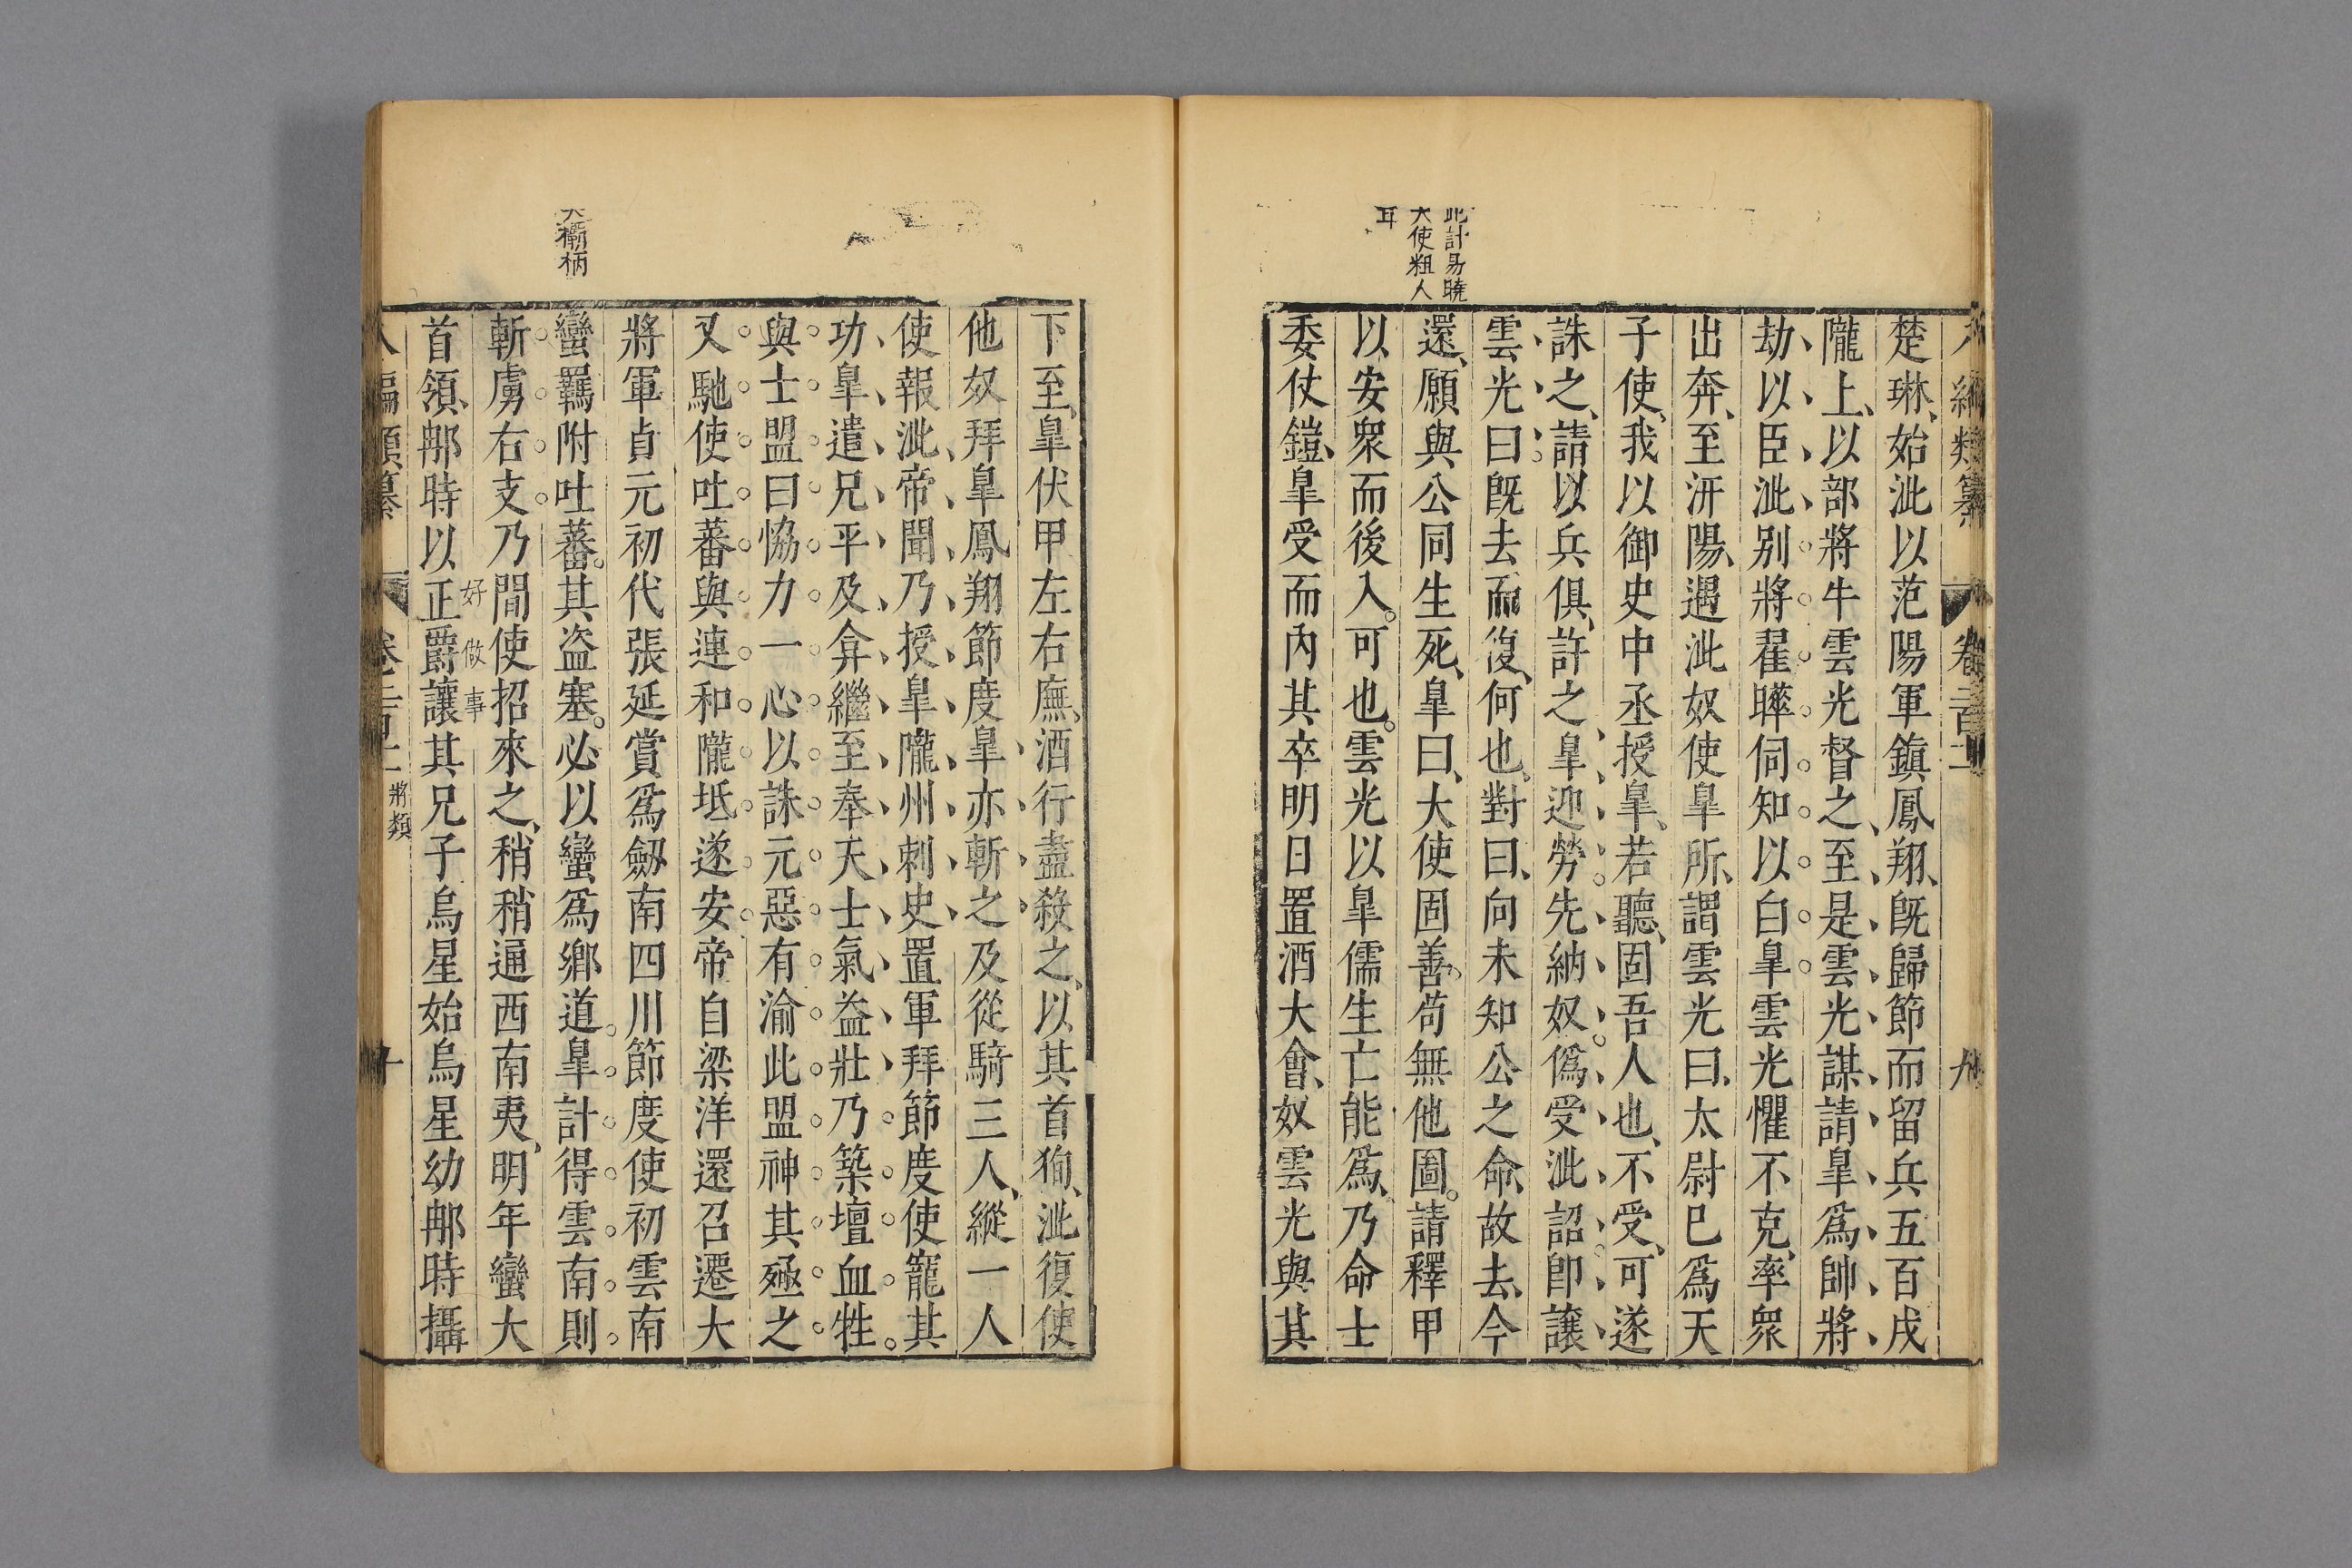 編類纂 卷二百二 九
楚琳、始泚以范陽軍鎮鳳翔、旣歸節而留兵五百戍
隴上、以部將牛雲光督之、至是雲光謀請臯爲帥、將
劫以臣泚、別將翟曄伺知以白臯、雲光懼不克、率衆
出奔、至汧陽、遇泚奴使臯所、謂雲光曰、太尉已爲天
子使、我以御史中丞授臯、若聽、固吾人也、不受、可遂
誅之、請以兵俱、許之、臯迎勞、先納奴、僞受泚詔、卽讓
雲光曰旣去而復、何也、對曰、向未知公之命、故去、今
還、願與公同生死、臯曰、大使固善、苟無他圖。請釋甲
以安衆而後入。可也。雲光以臯儒生亡能爲、乃命士
委仗鎧、臯受而內其卒明日置酒大會、奴雲光與其
此計易曉
大使粗人
耳
下至、臯伏甲左右廡、酒行盡殺之、以其首狥、泚復使
他奴拜臯鳳翔節度臯亦斬之及從騎三人、縱一人
使報泚、帝聞乃授臯隴州刺史置軍拜節度使寵其
功、臯遣兄平及弇繼至奉天士氣益壯乃築壇血牲。
與士盟曰恊力一心以誅元惡有渝此盟神其殛之
又馳使吐蕃與連和隴坻遂安帝自梁洋還召遷大
將軍貞元初代張延賞爲劔南四川節度使初雲南
蠻羈附吐蕃。其盜塞。必以蠻爲鄉道。臯計得雲南則
斬虜右支乃間使招來之、稍稍通西南夷、明年蠻大
好做事
首領䣕時以正爵讓其兄子烏星始烏星幼䣕時攝
欛柄
編類纂 將類 十